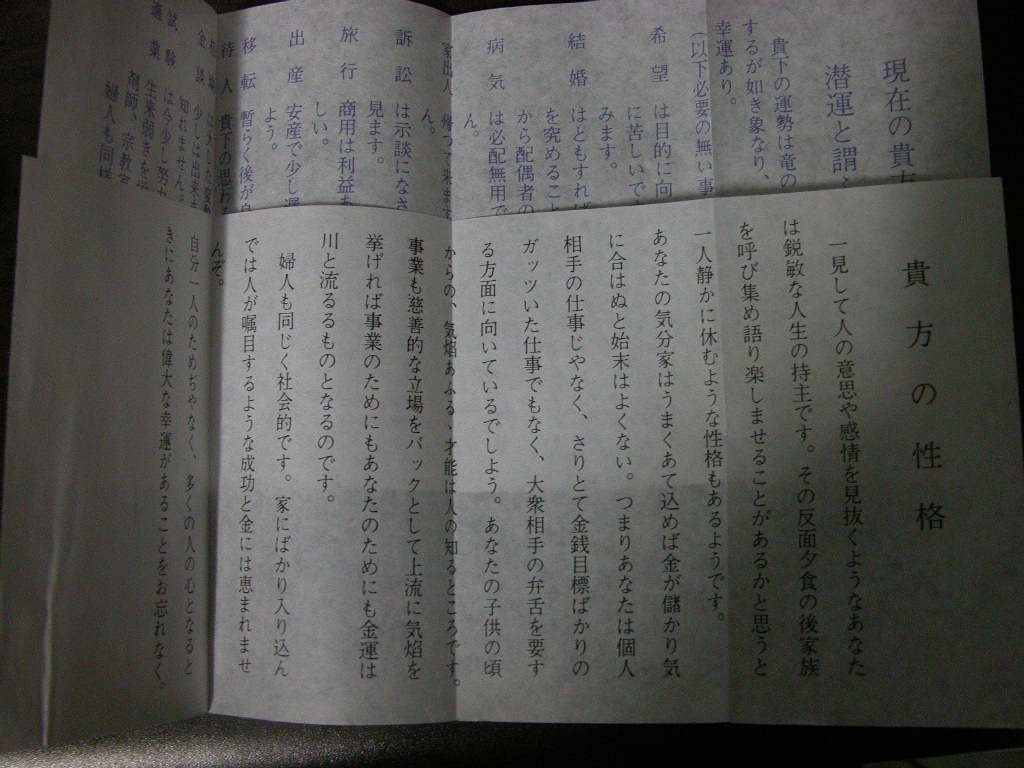 現在の貴
潜運と謂
貴下の運勢は竜の
するが如き象なり、
幸運あり。
(以下必要の無い事
希望 は目的に向
に苦しいで
みます。
結婚 はともすれば
を究めること
から配偶者の
病気 は必配無用で
ん。
帰つて来ます
ん。
訴訟 は示談になさ
見ます。
旅行 商用は利益あ
しい。
出産 安産で少し遅
よう。
移転 暫らく後が良
待人 貴下の思わ
金談 少しは出来ま
知れません。
試験 は今少し努力
生来弱きを
剤師、宗教
婦人も同様
貴方の性格
一見して人の意思や感情を見抜くようなあなた
は鋭敏な人生の持主です。その反面夕食の後家族
を呼び集め語り楽しませることがあるかと思うと
一人静かに休むような性格もあるようです。
あなたの気分家はうまくあて込めば金が儲かり気
に合はぬと始末はよくない。つまりあなたは個人
相手の仕事じやなく、さりとて金銭目標ばかりの
ガッツいた仕事でもなく、大衆相手の弁舌を要す
る方面に向いているでしよう。あなたの子供の頃
からの、気焰あふるゝ才能は人の知るところです。
事業も慈善的な立場をバックとして上流に気焰を
挙げれば事業のためにもあなたのためにも金運は
川と流るるものとなるのです。
婦人も同じく社会的です。家にばかり入り込ん
では人が嘱目するような成功と金には恵まれませ
んぞ。
自分一人のためぢやなく、多くの人の心となると
きにあなたは偉大な幸運があることをお忘れなく。